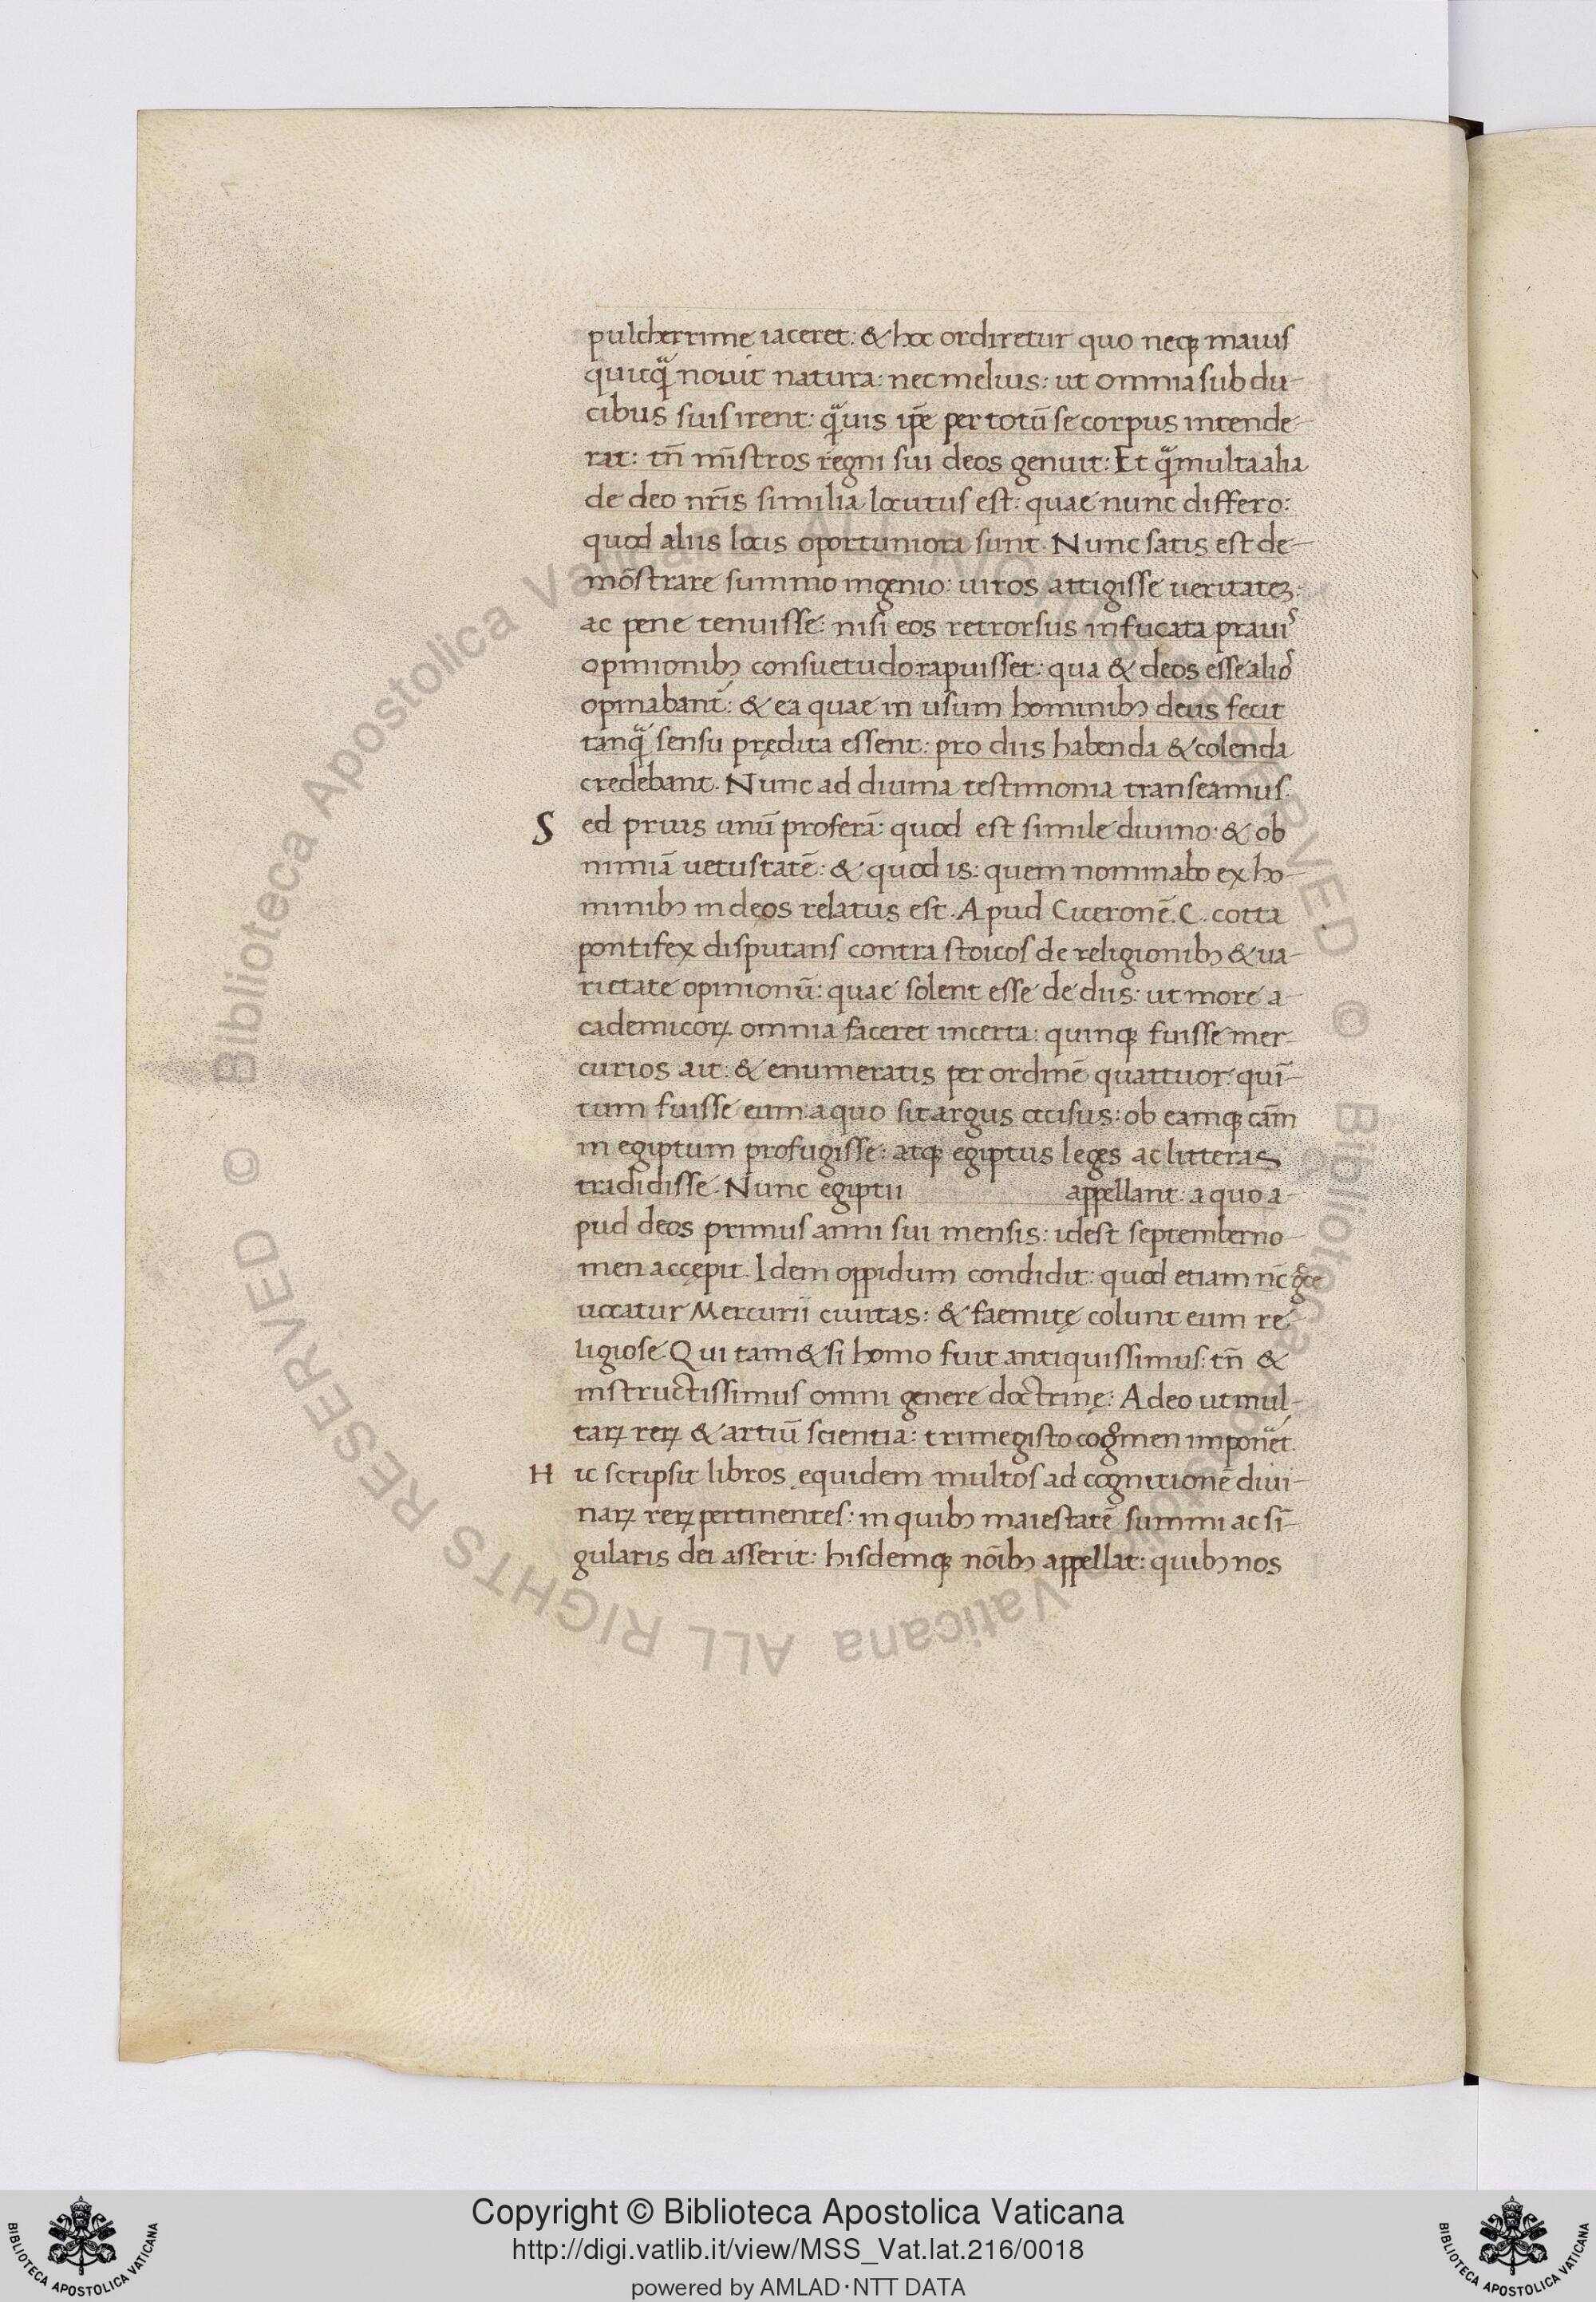 pulcherrime iaceret: & hoc ordiretur quo neqꝫ maius
quicq̃ nouit natura: nec melius: ut omnia sub du-
cibus suis irent: q̃uis ip̃e per totũ se corpus intende-
rat: tñ mĩstros regni sui deos genuit: Et q̃ multa alia
de deo nr̃is similia locutus est: quae nunc differo:
quod aliis locis oportuniora sunt. Nunc satis est de-
mõstrare summo ingenio: uiros attigisse ueritateꝫ:
ac pene tenuisse: nisi eos retrorsus infucata prauiˢ
opinionibꝫ consuetudo rapuisset: qua & deos esse alioˢ
opinabant᷑: & ea quae in usum hominibꝫ deus fecit
tanq̃ sensu prędita essent: pro diis habenda & colenda
credebant. Nunc ad diuina testimonia transeamus.
Sed prius unũ proferã: quod est simile diuino: & ob
nimiã uetustatẽ: & quod is: quem nominabo ex ho-
minibꝫ in deos relatus est. Apud Ciceronẽ. C. cotta
pontifex disputans contra stoicos de religionibꝫ & ua-
rietate opinionũ: quae solent esse de diis: ut more a-
cademicoꝝ omnia faceret incerta: quinqꝫ fuisse mer-
curios ait: & enumeratis per ordinẽ quattuor: quĩ-
tum fuisse eum: a quo sit argus occisus: ob eamqꝫ cãm
in egiptum profugisse: atqꝫ egiptus leges ac litteras
tradidisse. Nunc egiptii appellant: a quo a-
pud deos primus anni sui mensis: idest september no-
men accępit. Idem oppidum condidit: quod etiam nc̃ gͣce
uocatur Mercurii ciuitas: & faemitę colunt eum re-
ligiose. Qui tam & si homo fuit antiquissimus: tñ &
instructissimus omni genere doctrinę: Adeo ut mul-
taꝝ reꝝ & artiũ scientia: trimegisto cogͦmen imponẽt.
Hic scripsit libros equidem multos ad cognitionẽ diui-
naꝝ reꝝ pertinentes: in quibꝫ maiestatẽ summi ac sĩ-
gularis dei asserit: hisdemqꝫ nõibꝫ appellat: quibꝫ nos
© Biblioteca Apostolica Vaticana ALL RIGHTS RESERVED © Biblioteca Apostolica Vaticana ALL RIGHTS RESERVED
Copyright © Biblioteca Apostolica Vaticana
http://digi.vatlib.it/view/MSS_Vat.lat.216/0018
powered by AMLAD·NTT DATA
BIBLIOTECA APOSTOLICA VATICANA
BIBLIOTECA APOSTOLICA VATICANA